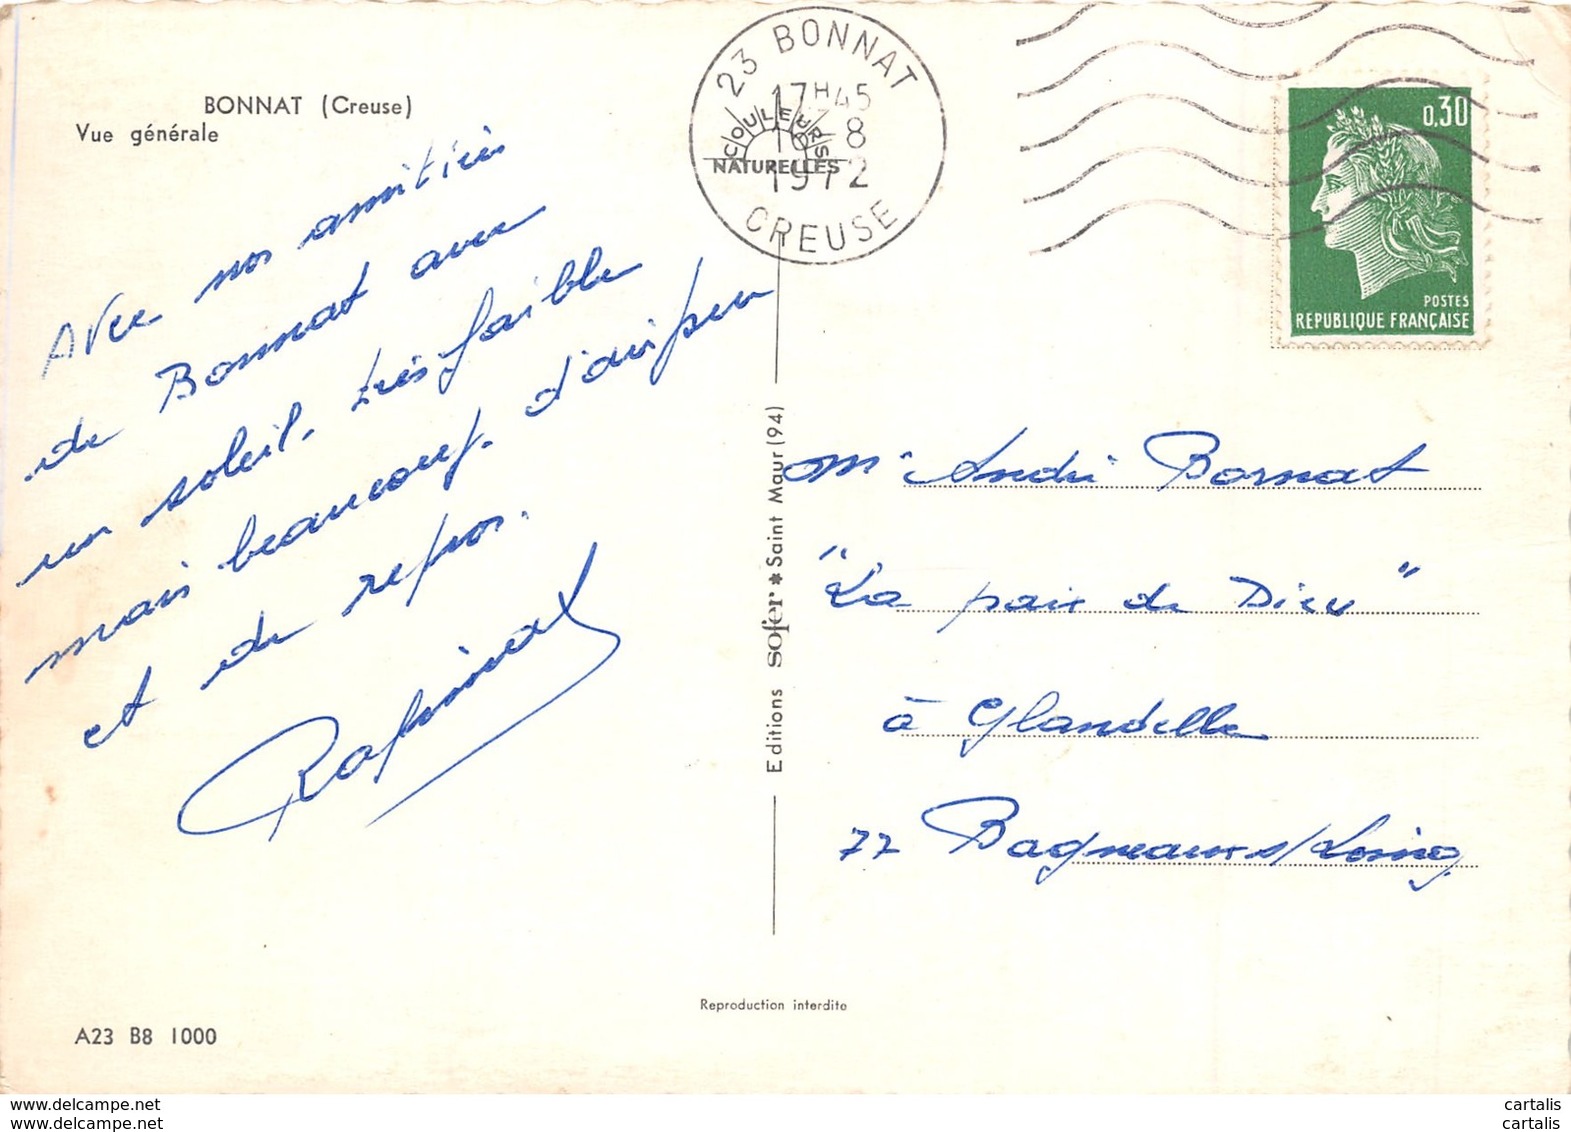 BONNAT (Creuse)
Vue générale
23 BONNAT
17H45
16 8
1972
CREUSE
COULEURS
NATURELLES
0,30
POSTES
REPUBLIQUE FRANÇAISE
Avec nos amitiés
de Bonnat avec
un soleil très faible
mais beaucoup d'air pur
et de repos.
Editions Sofer * Saint Maur (94)
Mr André Bornat
"La paix de Dieu"
à Glandelle
77 Bagneaux s/Loing
Reproduction interdite
A23 B8 1000
http://www.delcampe.net
cartalis
cartalis